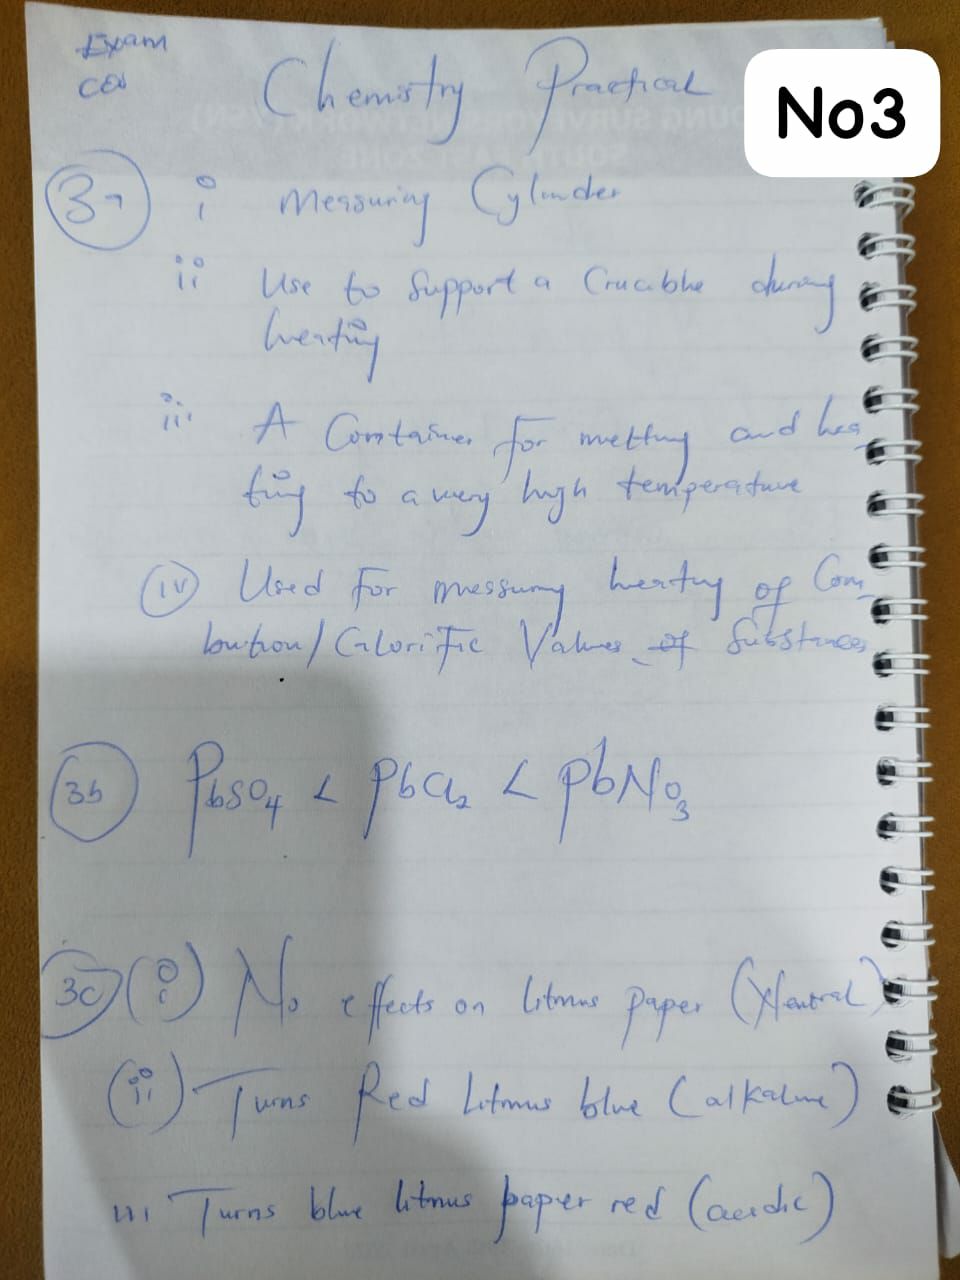 Exam
Chemistry Practical
No3
3a i Measuring Cylinder
ii Use to support a Crucible during
heating
iii A Container for melting and hea
ting to a very high temperature
(iv) Used For measuring heating of Com
bution/Calorific Values of Substances
3b PbSO4 < PbCl2 < PbNO3
3c (i) No effects on litmus paper (Neutral)
(ii) Turns Red litmus blue (alkaline)
iii Turns blue litmus paper red (acidic)